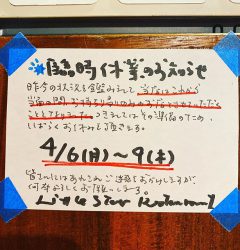 臨時休業のお知らせ
昨今の状況を鑑みまして、当店はこれから
当面の間、お持ち帰りのみのお店とさせていただく
こととなりました。つきましてはその準備のため、
しばらくお休みを頂きます。
4/6(月)〜9(木)
皆さんにはあれこれご迷惑をおかけしますが、
何卒よろしくお願いします。
Little Star Restaurant